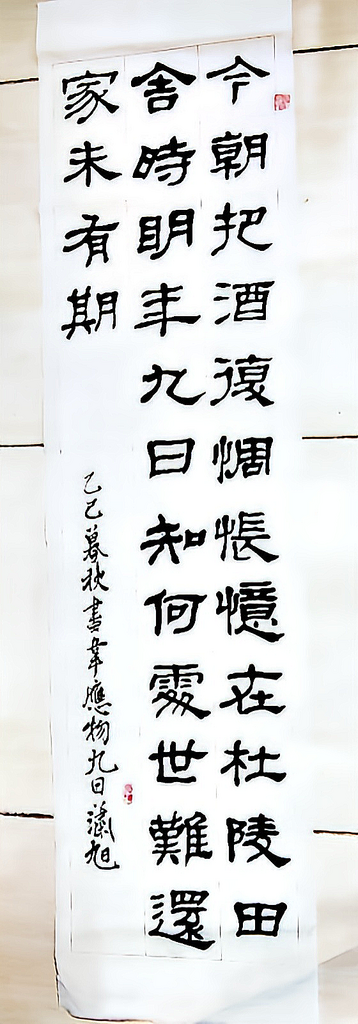 今朝把酒復惆悵憶在杜陵田
舍時明年九日知何處世難還
家未有期
乙巳暮秋書韋應物九日 旭